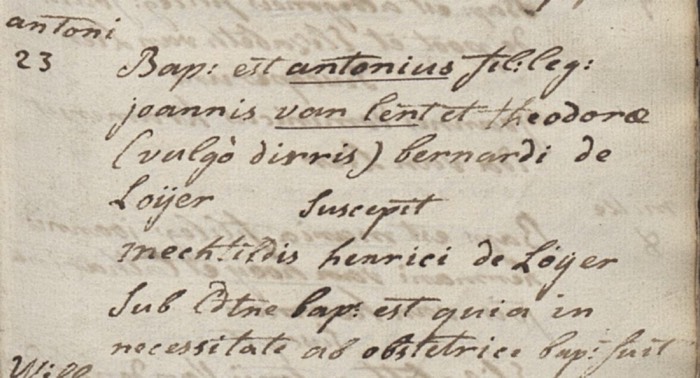 antoni
23 Bap: est antonius fil: leg:
joannis van lent et theodoræ
(vulgò dirris) bernardi de
Loÿer suscepit
mechtildis henrici de Loÿer
Sub Cdtne bap: est quia in
necessitate ab obstetrice bap: fuit
Will